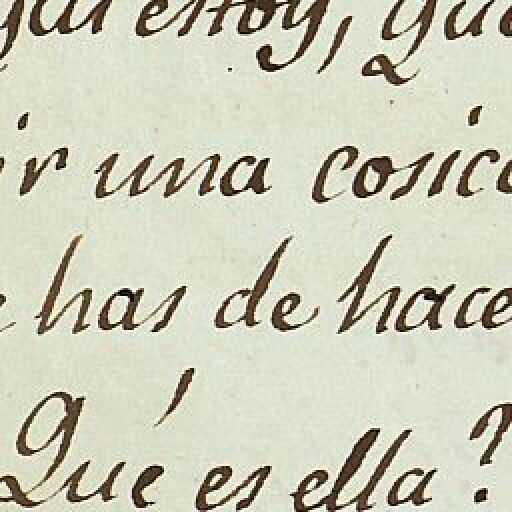 estoy, que
ir una cosica
has de hacer
Qué es ella?